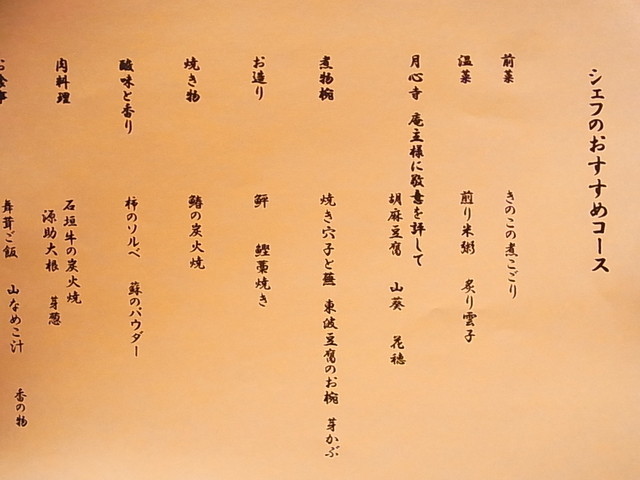 シェフのおすすめコース
前菜 きのこの煮こごり
温菜 煎り米粥 炙り雲子
月心寺 庵主様に敬意を評して
胡麻豆腐 山葵 花穂
煮物椀 焼き穴子と蕪 東波豆腐のお椀 芽かぶ
お造り 鮃 鰹藁焼き
焼き物 鰆の炭火焼
酸味と香り 柿のソルベ 蘇のパウダー
肉料理 石垣牛の炭火焼
源助大根 芽葱
お食事 舞茸ご飯 山なめこ汁 香の物